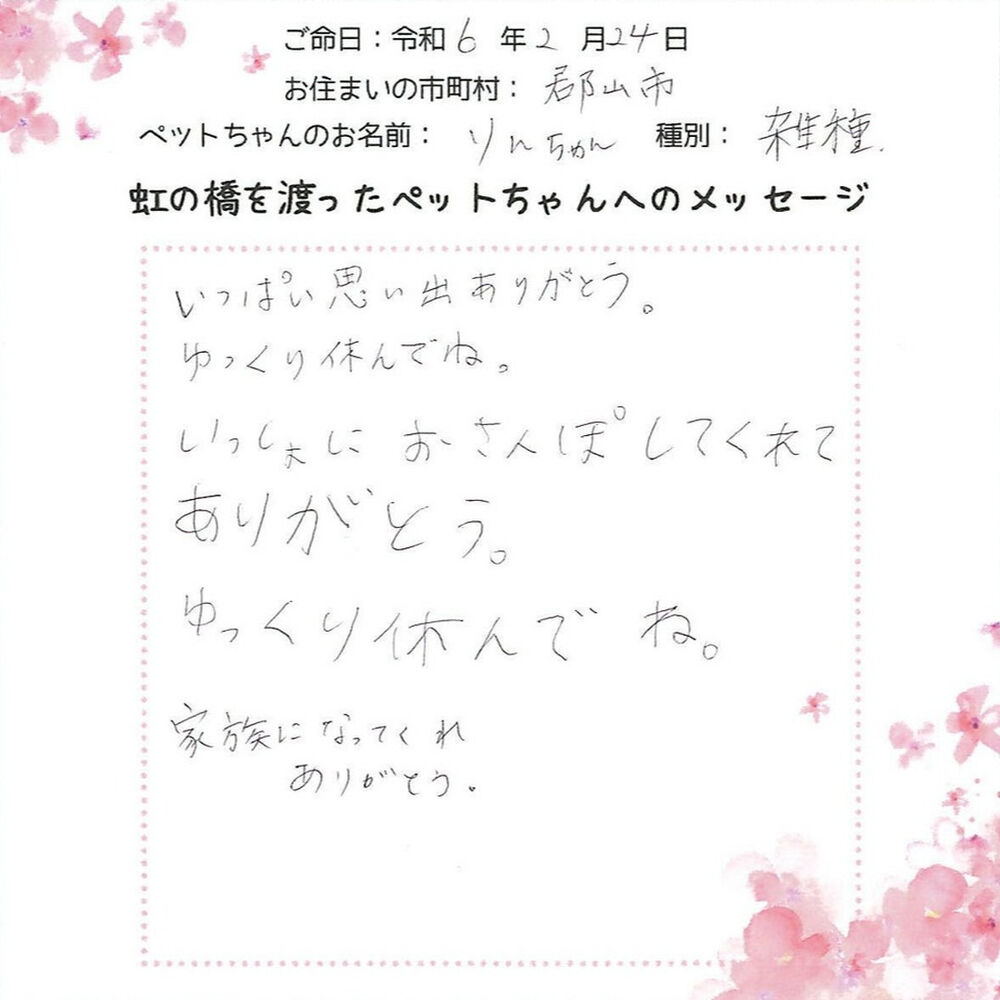 ご命日：令和6年2月24日
お住まいの市町村：郡山市
ペットちゃんのお名前：りんちゃん 種別：雑種.
虹の橋を渡ったペットちゃんへのメッセージ
いっぱい思い出ありがとう。
ゆっくり休んでね。
いっしょに おさんぽしてくれて
ありがとう。
ゆっくり休んでね。
家族になってくれ
ありがとう.